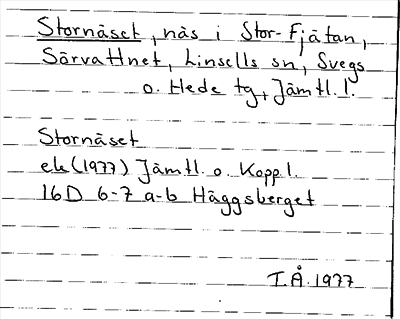 Stornäset, näs i Stor-Fjätan,
Särvattnet, Linsells sn, Svegs
o. Hede tg, Jämtl. l.
Stornäset
ek (1977) Jämtl. o. Koppl.
16D 6-7 a-b Häggsberget
T.Å. 1977